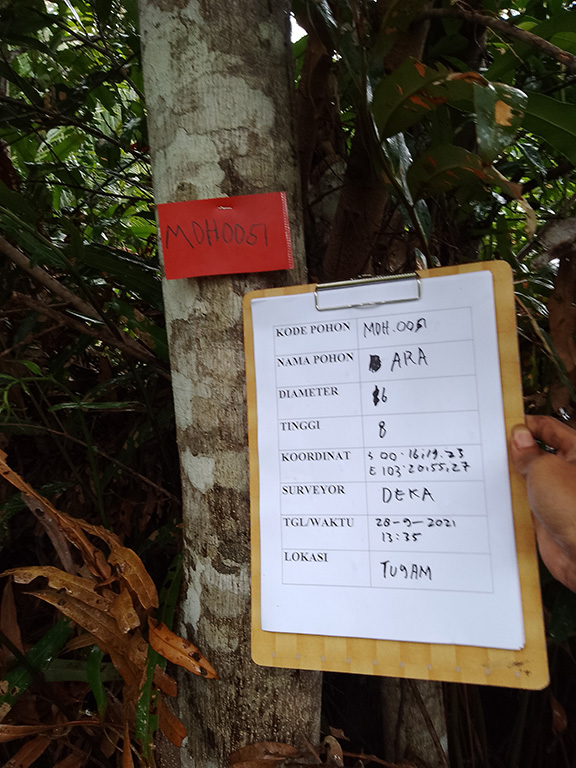 MDH0051
KODE POHON MDH.0051
NAMA POHON ARA
DIAMETER 16
TINGGI 8
KOORDINAT S 00.16:19.23
E 103:20:55,27
SURVEYOR DEKA
TGL/WAKTU 28-9-2021
13:35
LOKASI TUGAM